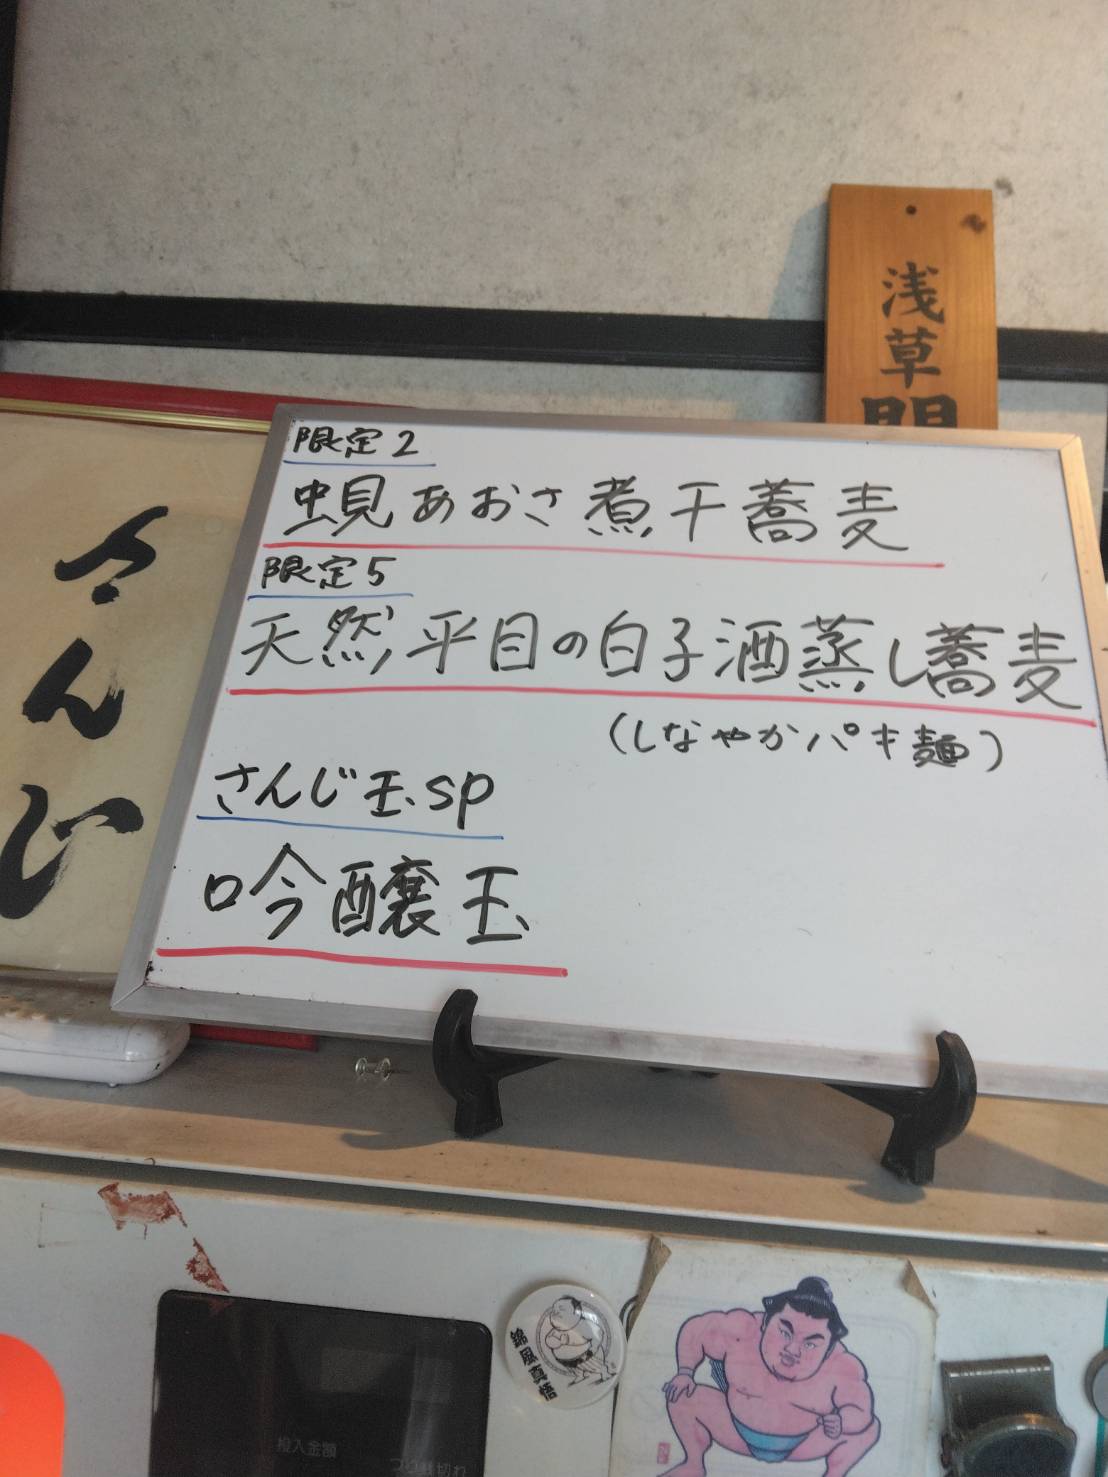 浅草開
さんじ
限定2
蜆あおさ煮干蕎麦
限定5
天然平目の白子酒蒸し蕎麦
(しなやかパキ麺)
さんじ玉sp
吟醸玉
投入金額
つり銭切れ